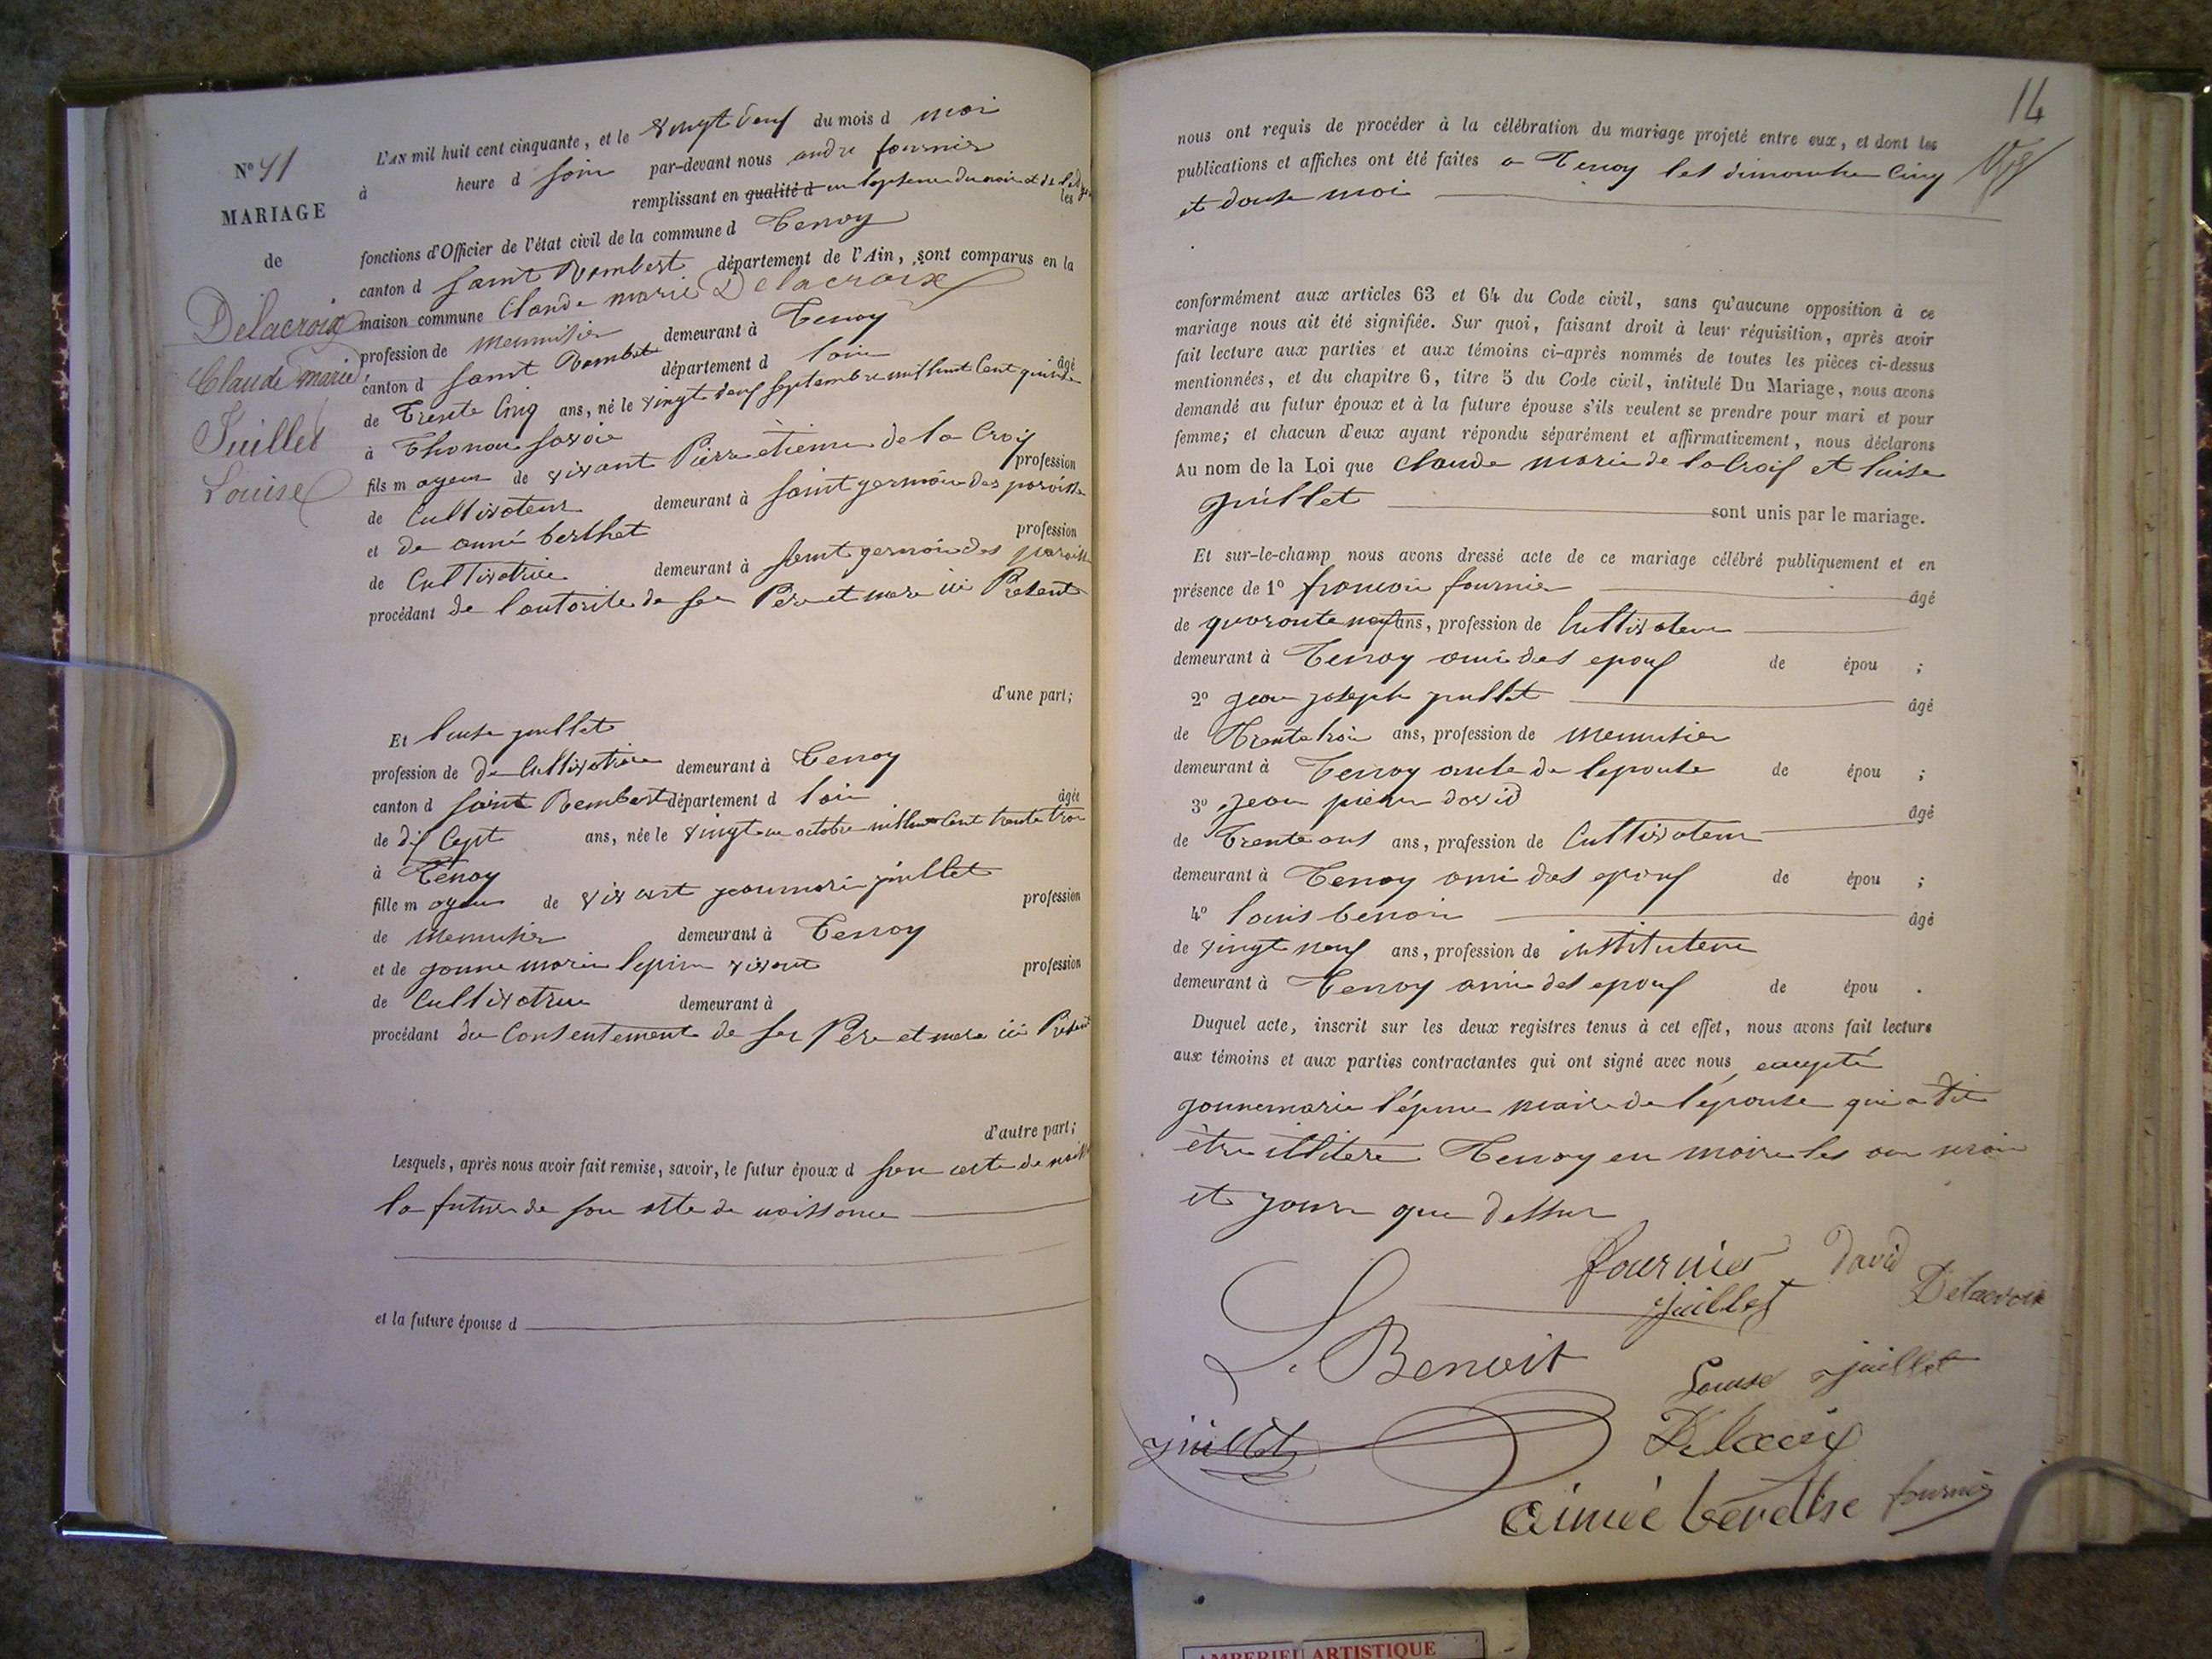 N° 41
MARIAGE
de
Delacroix
Claude marie
Juillet
Louise
L'AN mil huit cent cinquante, et le vingt deux du mois d mai
à heure d soir par-devant nous andre fournier
remplissant en qualité d en l'apsence du maire et de l'adj
les
fonctions d'Officier de l'état civil de la commune d Tenay
canton d saint Rambert département de l'Ain, sont comparus en la
maison commune Claude marie Delacroix
profession de menuisier demeurant à Tenay
canton d saint Rambert département d l'ain âgé
de Trente Cinq ans, né le vingt deux septembre mil huit Cent quinze
à Thonon savoie
fils m ageur de vivant Pierre etienne de la Croix profession
de Cultivateur demeurant à saint germain des paroisse
et de aimé berthet profession
de Cultivatrice demeurant à saint germain des paroisse
procédant de l'autorite de ses Père et mere ici Present
d'une part;
Et luise juillet
profession de de Cultivatrice demeurant à Tenay
canton d saint Rembert département d l'ain âgée
de dix Cept ans, née le vingt un octobre mil huit Cent trente troi
à Tenay
fille m ageur de vivant jean marie juillet profession
de menusier demeurant à Tenay
et de janne marie lepine vivant profession
de Cultivatrice demeurant à
procédant du Consentement de ses Père et mere ici Présent
d'autre part;
Lesquels, après nous avoir fait remise, savoir, le futur époux d son acte de naiss
la future de son atte de naissance
et la future épouse d
14
nous ont requis de procéder à la célébration du mariage projeté entre eux, et dont les
publications et affiches ont été faites a Tenay les dimanche Cinq
et douse mai
conformément aux articles 63 et 64 du Code civil, sans qu'aucune opposition à ce
mariage nous ait été signifiée. Sur quoi, faisant droit à leur réquisition, après avoir
fait lecture aux parties et aux témoins ci-après nommés de toutes les pièces ci-dessus
mentionnées, et du chapitre 6, titre 5 du Code civil, intitulé Du Mariage, nous avons
demandé au futur époux et à la future épouse s'ils veulent se prendre pour mari et pour
femme; et chacun d'eux ayant répondu séparément et affirmativement, nous déclarons
Au nom de la Loi que Claude marie de la Croix et luise
juillet sont unis par le mariage.
Et sur-le-champ nous avons dressé acte de ce mariage célébré publiquement et en
présence de 1° francois fournier âgé
de quaronte neuf ans, profession de Cultivateur
demeurant à Tenay ami des epoux de épou ;
2° jean joseph juillet âgé
de Trente troi ans, profession de menusier
demeurant à Tenay oncle de lepouse de épou ;
3° jean pierre david âgé
de Trente ans ans, profession de Cultivateur
demeurant à Tenay ami des epoux de épou ;
4° louis benoit âgé
de vingt neuf ans, profession de instituteur
demeurant à Tenay ami des epoux de épou .
Duquel acte, inscrit sur les deux registres tenus à cet effet, nous avons fait lecture
aux témoins et aux parties contractantes qui ont signé avec nous, excepté
jannemarie l'épine maire de l'épouse qui a dit
être illitéré Tenay en mairie les an moi
et jour que dessus
fournier David
juillet Delacroix
L. Benoit
Louise juillet
juillet Delacroix
aimée berethe fournier
AMBERIEU ARTISTIQUE